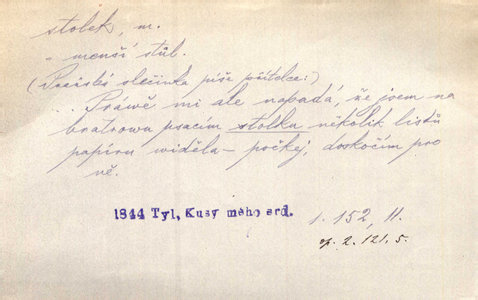 stolek, m.
- menší stůl.
(Pražská slečinka píše přítelce:)
.. Prawě mi ale napadá, že jsem na
bratrowu psacím stolku několik listů
papíru widěla – počkej, doskočím pro
ně.
1844 Tyl, Kusy mého srd.
1. 152, H.
op. 2. 121. 5.